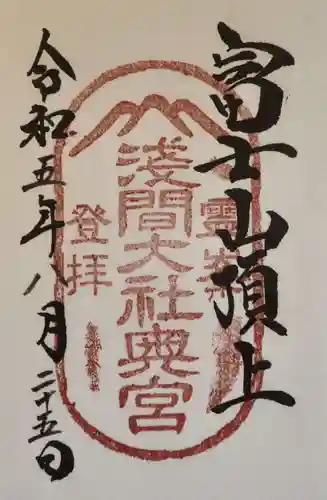 富士山頂上
靈峰
淺間大社奥宮
登拝
令和五年八月二十五日